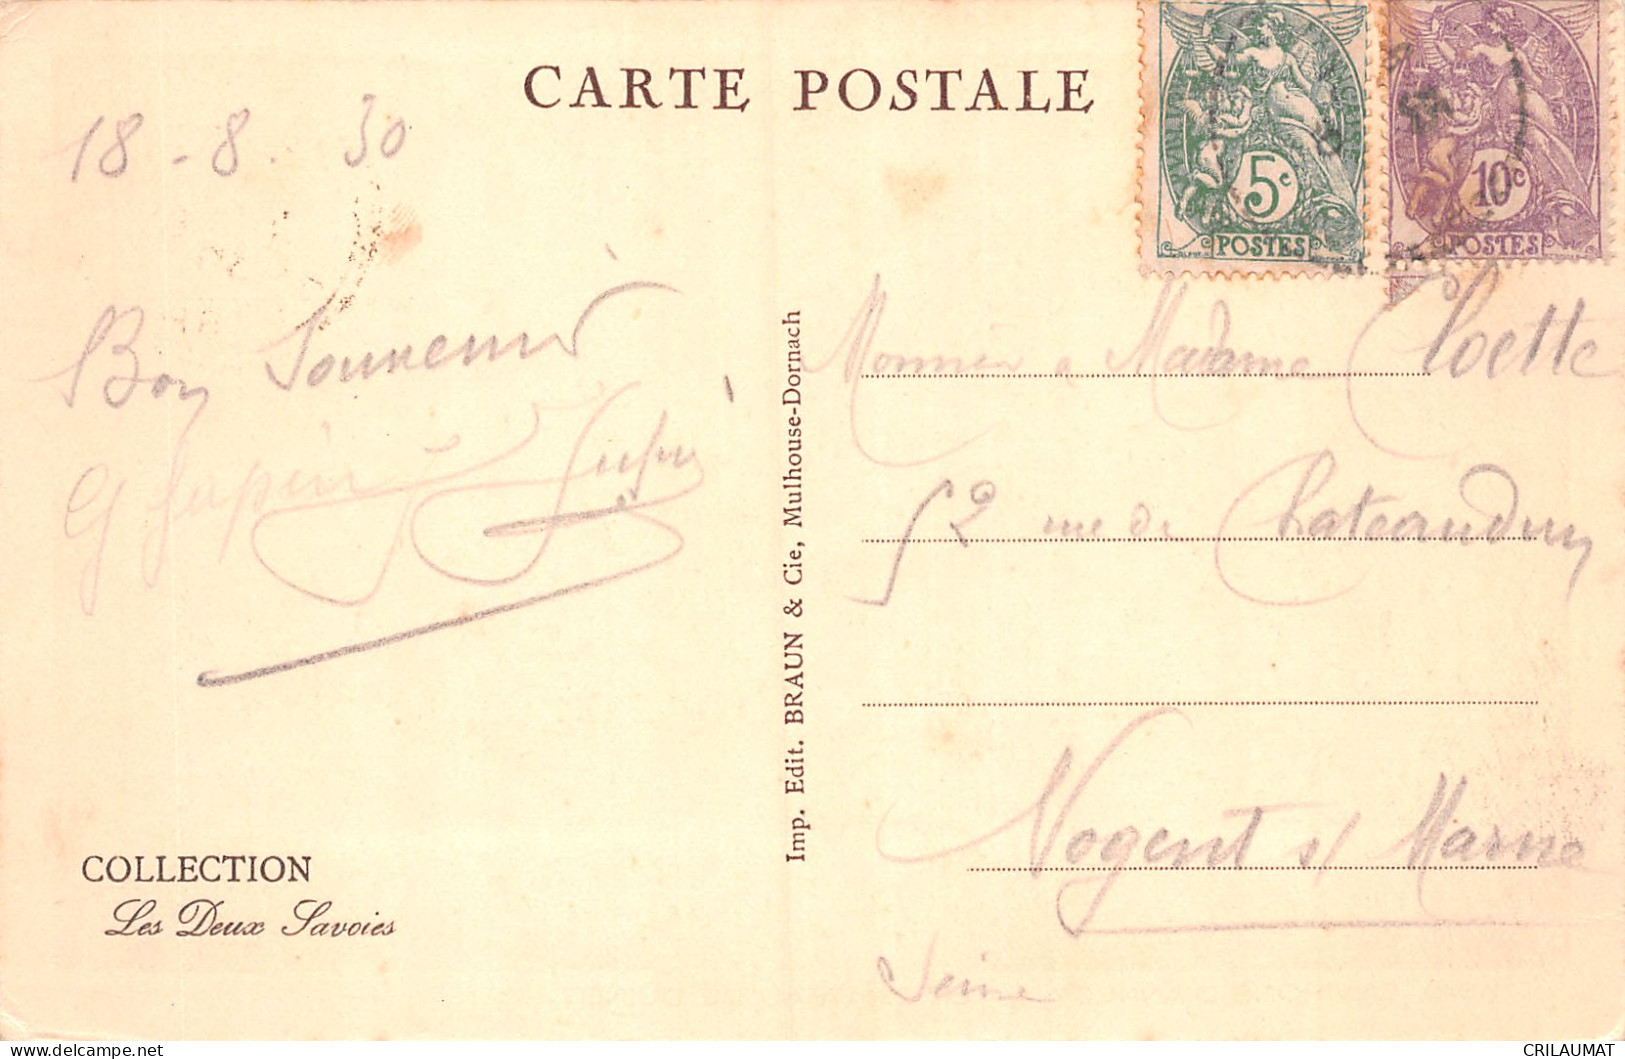 CARTE POSTALE
18 - 8. 30
Bon Souvenir
5c
POSTES
10c
POSTES
Monsieur & Madame Cloette
52 rue de Chateaudun
Nogent s/ Marne
Seine
Imp. Edit. BRAUN & Cie, Mulhouse-Dornach
COLLECTION
Les Deux Savoies
CRILAUMAT